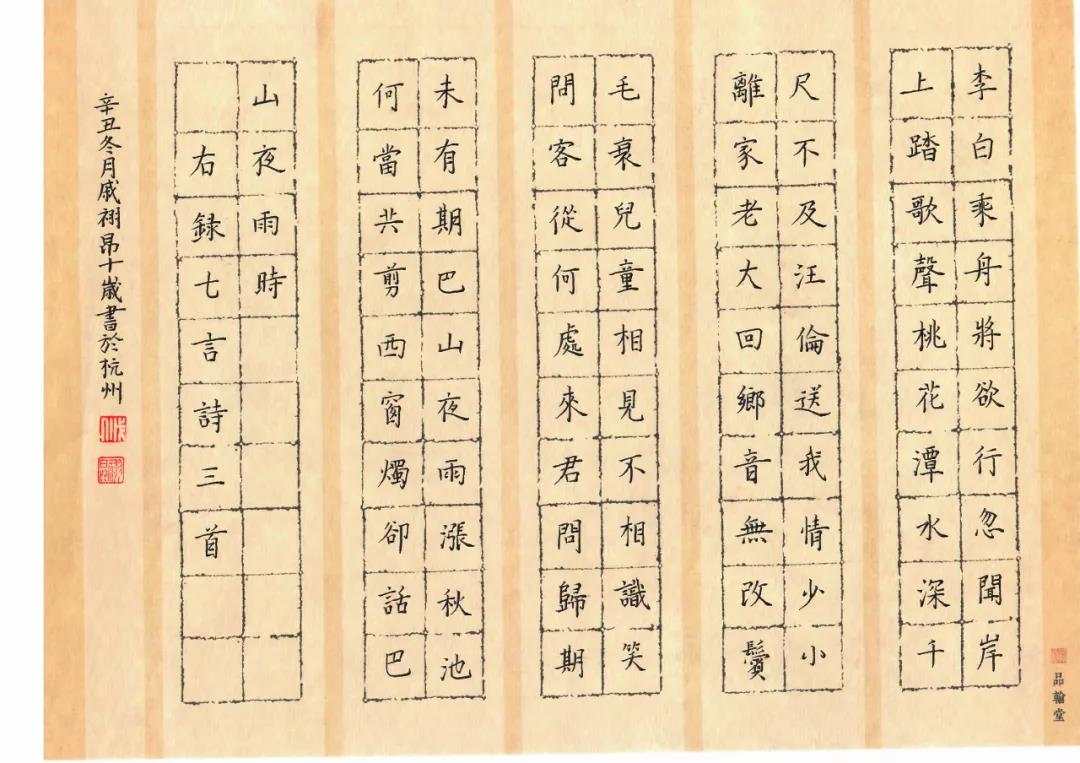 李白乘舟將欲行忽聞岸
上踏歌聲桃花潭水深千
尺不及汪倫送我情少小
離家老大回鄉音無改鬢
毛衰兒童相見不相識笑
問客從何處來君問歸期
未有期巴山夜雨漲秋池
何當共剪西窗燭卻話巴
山夜雨時
右録七言詩三首
辛丑冬月戚栩昂十歲書於杭州
品翰堂